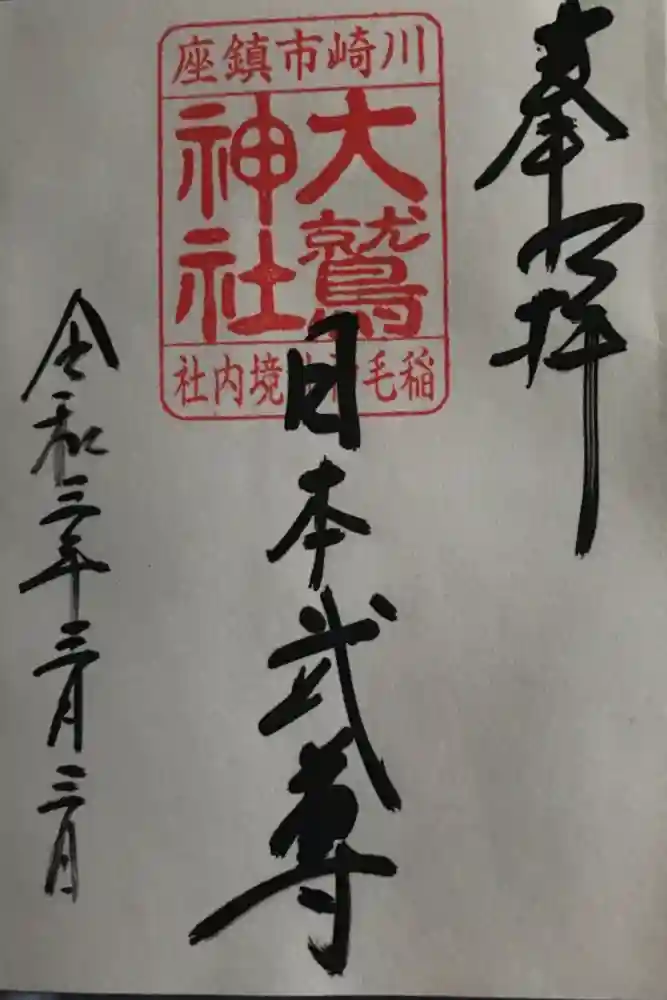 奉拝
川崎市鎮座
大鷲
神社
稲毛神社境内社
日本武尊
令和三年三月三日